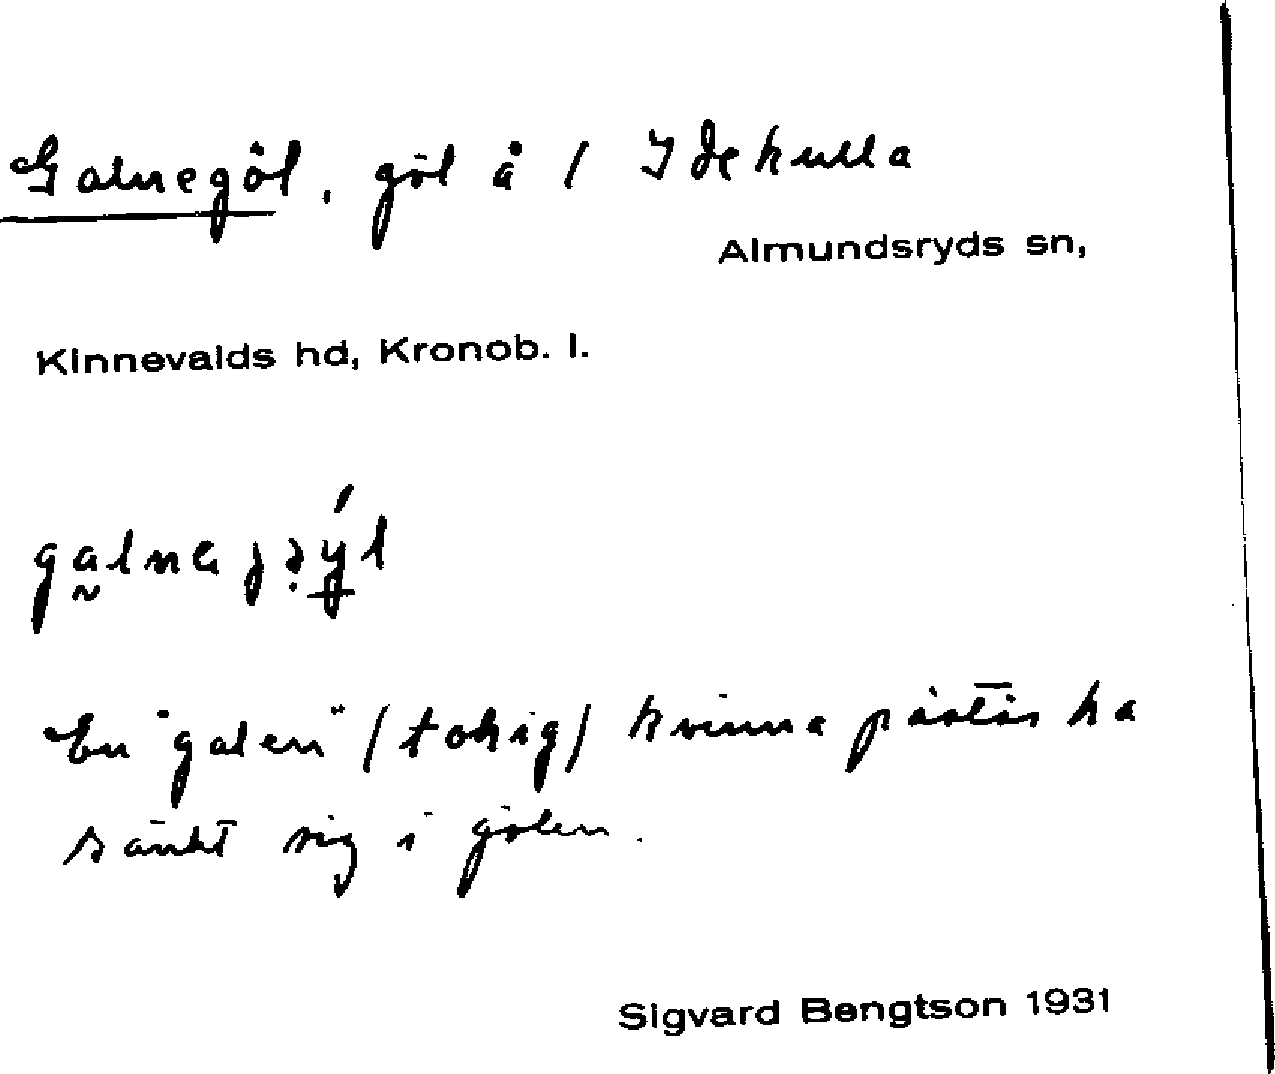 Galnegöl, göl å / Idekulla
Almundsryds sn,
Kinnevalds hd, Kronob. l.
En "galen" (tokig) kvinna påstås ha
sänkt sig i gölen.
Sigvard Bengtson 1931